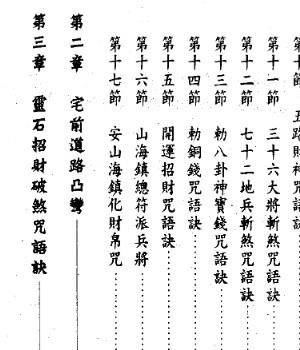 第十節 五路財神咒語訣
第十一節 三十六大將斬煞咒語訣
第十二節 七十二地兵斬煞咒語訣
第十三節 勅八卦神寶錢咒語訣
第十四節 勅銅錢咒語訣
第十五節 開運招財咒語訣
第十六節 山海鎮總符派兵將
第十七節 安山海鎮化財帛咒
第二章 宅前道路凸彎
第三章 靈石招財破煞咒語訣